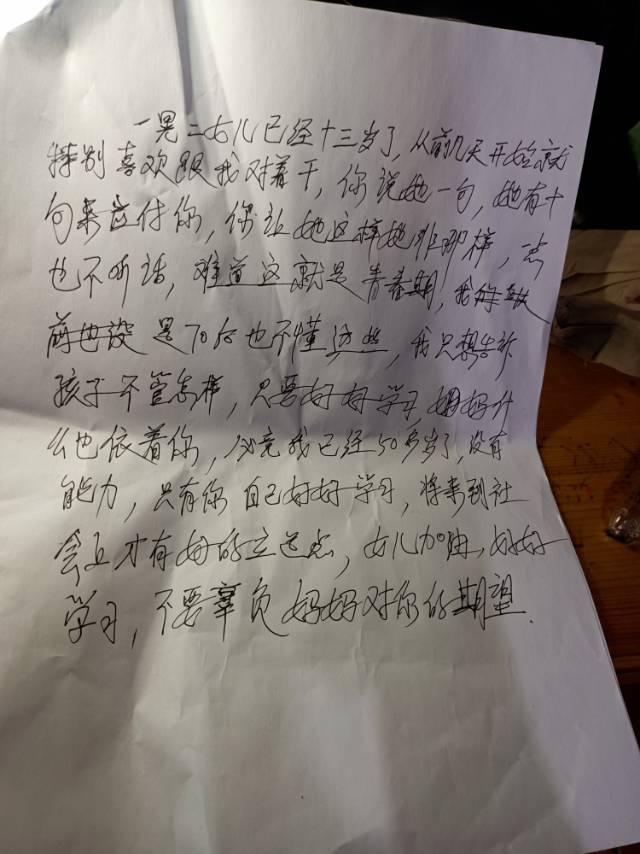 一晃二女儿已经十三岁了，从前几天开始就
特别喜欢跟我对着干，你说她一句，她有十
句来应付你，你让她这样她非那样，一点
也不听话，难道这就是青春期，我
是70后也不懂这些，我只想告诉
孩子不管怎样，只要好好学习，妈妈什
么也依着你，必竞我已经50多岁了，没有
能力，只有你自己好好学习，将来到社
会上才有好的立足点，女儿加油，好好
学习，不要辜负妈妈对你的期望.